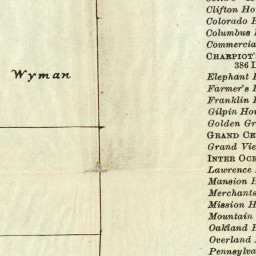 Wyman
Clifton Ho
Colorado
Columbus
Commercia
CHARPIOT'
386
Elephant
Farmer's
Franklin
Gilpin Hou
Golden Gr
GRAND CE
Grand Vie
INTER OCE
Lawrence
Mansion H
Merchants
Mission H
Mountain
Oakland H
Overland
Pennsylva